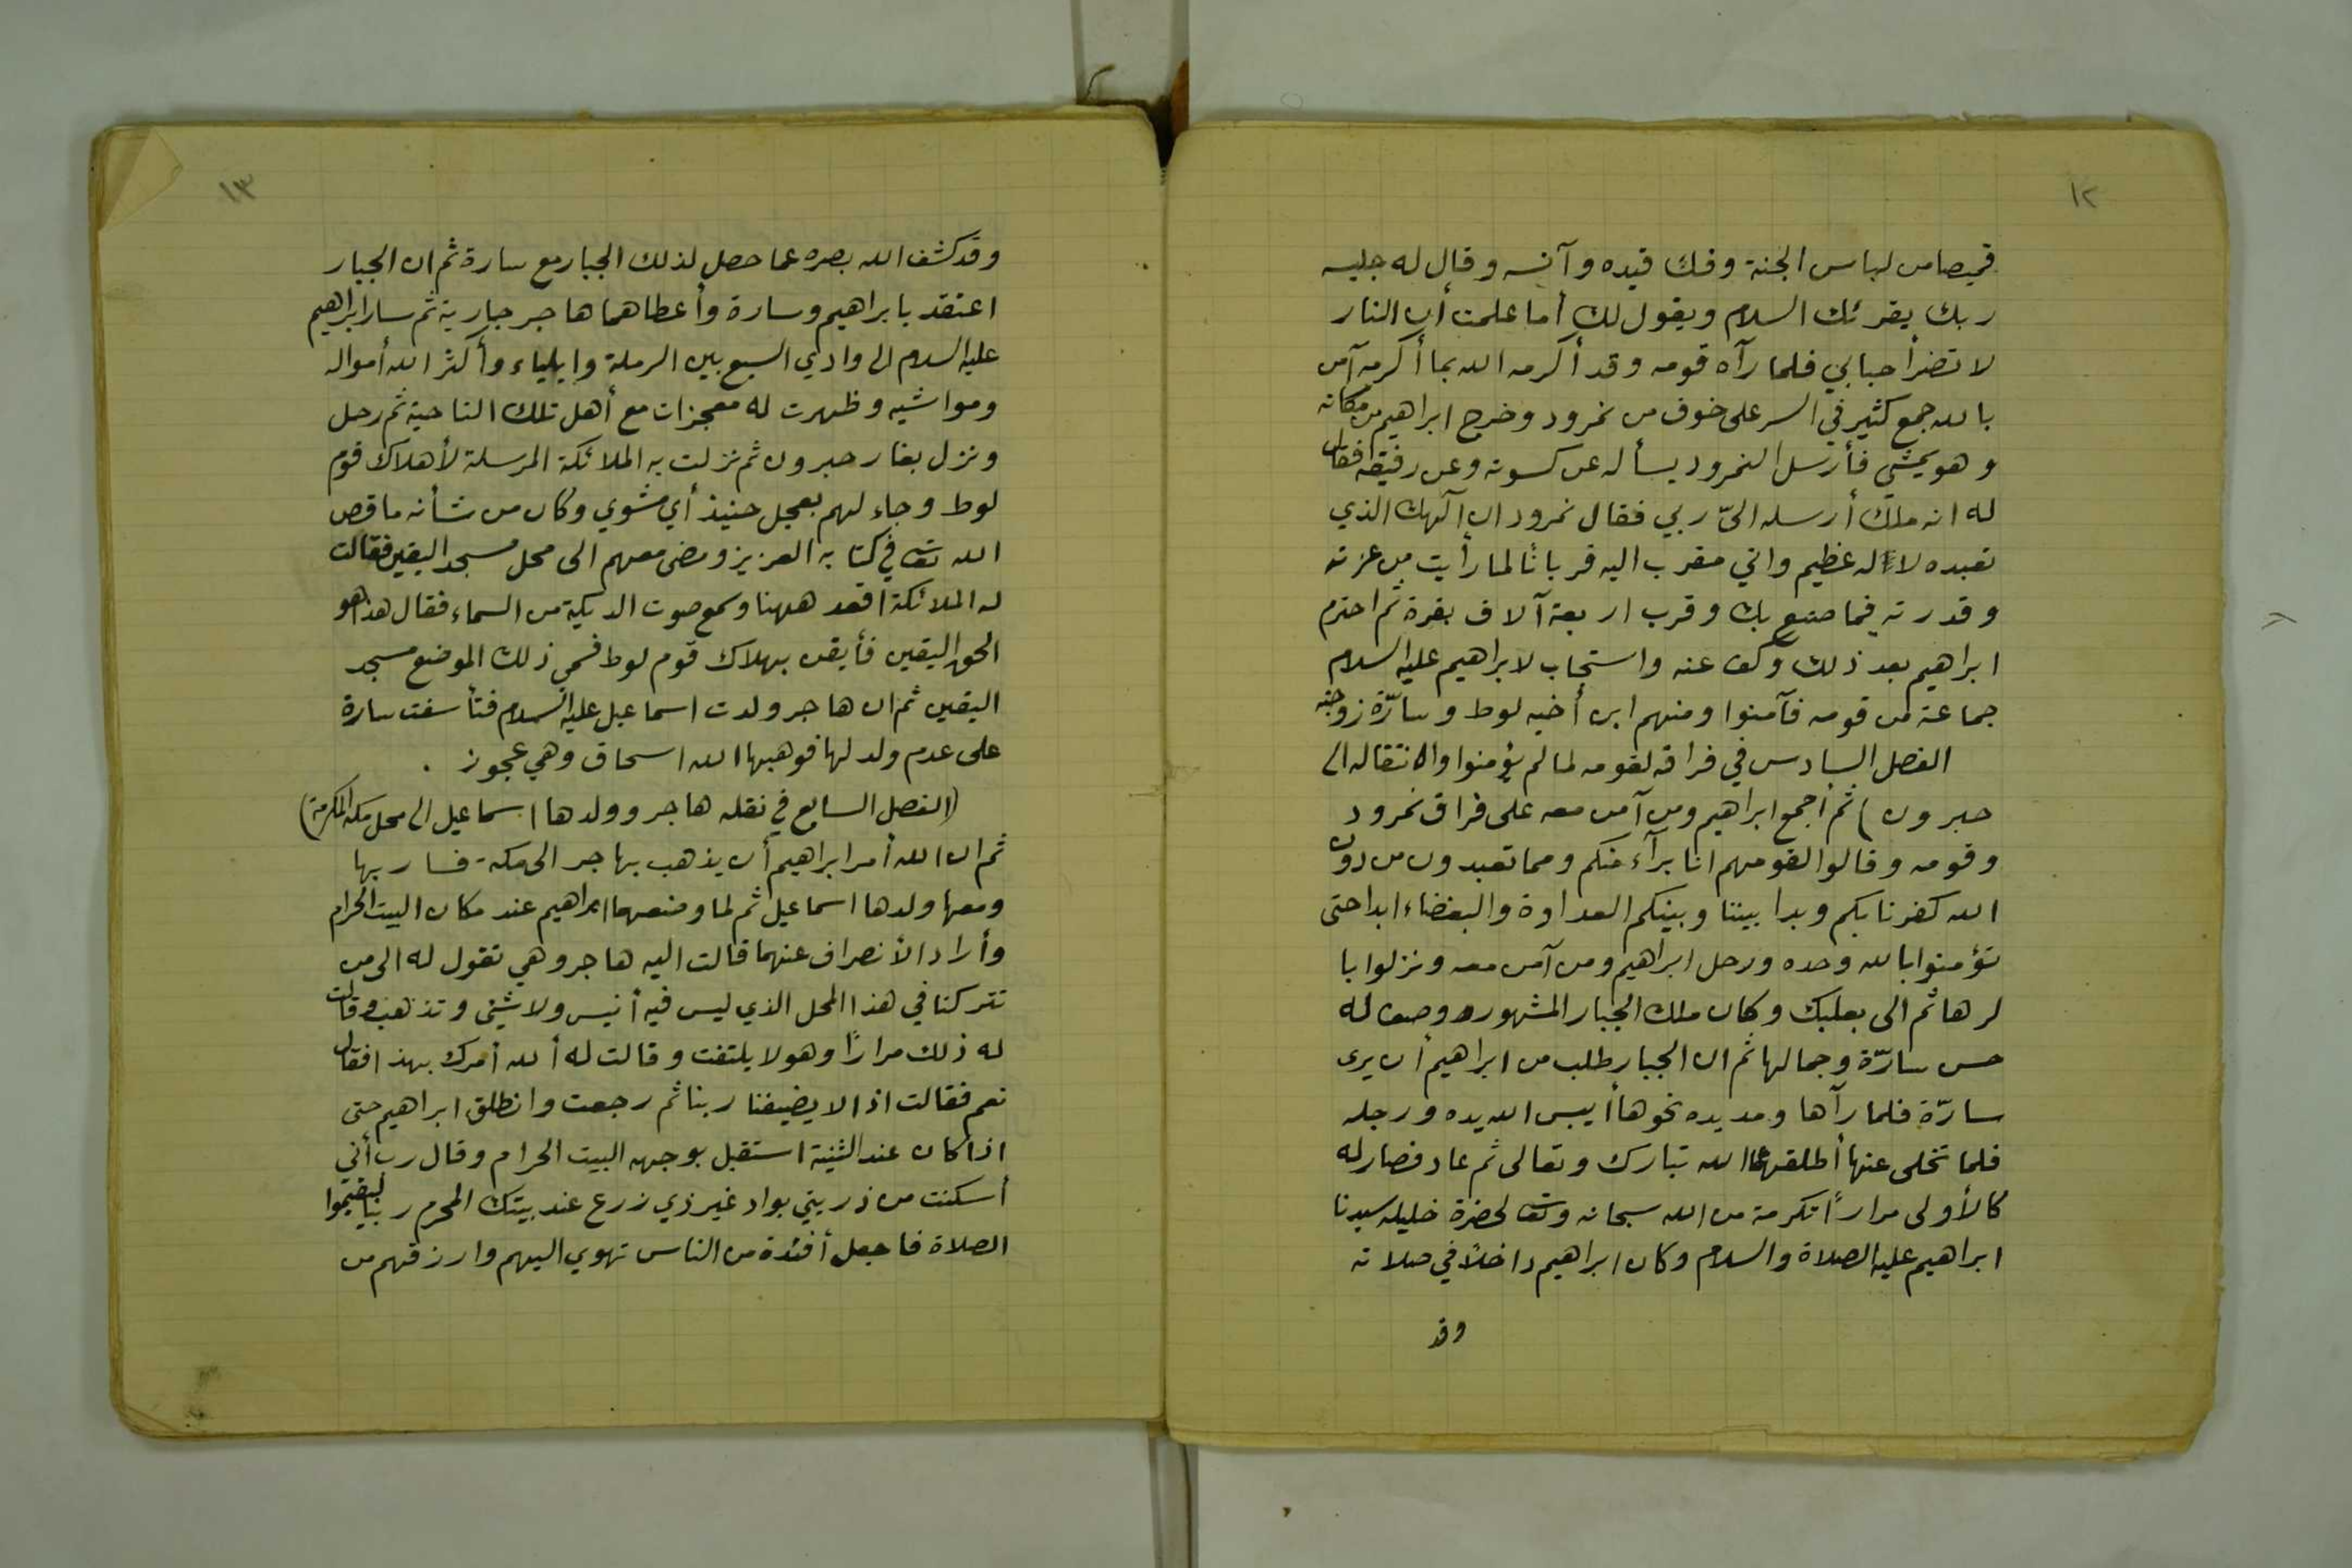 ١٢
قميصا من لباس الجنة وفك قيده وآنسه وقال له جليسه
ربك يقرئك السلام ويقول لك أما علمت أن النار
لا تضر أحبابي فلما رآه قومه وقد أكرمه الله بما أكرمه آمن
بالله جمع كثير في السر على خوف من نمرود وخرج ابراهيم من مكانه
وهو يمشي فأرسل النمرود يسأله عن كسوته وعن رفيقه فقال
له انه ملك أرسله اليّ ربي فقال نمرود ان آلهك الذي
تعبده لاله عظيم واني مقرب اليه قربانًا لما رأيت من عزته
وقدرته فيما صنع بك وقرب اربعة آلاف بقرة ثم احترم
ابراهيم بعد ذلك وكف عنه واستجاب لابراهيم عليه السلام
جماعة من قومه فآمنوا ومنهم ابن أخيه لوط وسارّة زوجته
الفصل السادس في فراقه لقومه لما لم يؤمنوا والانتقاله الى
حبرون) ثم أجمع ابراهيم ومن آمن معه على فراق نمرود
وقومه وقالوا لقومهم انا برآء منكم ومما تعبدون من دون
الله كفرنا بكم وبدا بيننا وبينكم العداوة والبغضاء ابدا حتى
تؤمنوا بالله وحده ورحل ابراهيم ومن آمن معه ونزلوا با
لرها ثم الى بعلبك وكان ملك الجبار المشهور ووصف له
حسن سارّة وجمالها ثم ان الجبار طلب من ابراهيم أن يرى
سارّة فلما رآها ومد يده نحوها أيبس الله يده ورجله
فلما تخلى عنها أطلقهما الله تبارك وتعالى ثم عاد فصار له
كالأولى مرارًا تكرمة من الله سبحانه وتعـ لحضرة خليله سيدنا
ابراهيم عليه الصلاة والسلام وكان ابراهيم داخلًا في صلاته
وقد
١٣
وقد كشف الله بصره عما حصل لذلك الجبار مع سارة ثم ان الجبار
اعتقد بابراهيم وسارة وأعطاهما هاجر جارية ثم سار ابراهيم
عليه السلام الى وادي السبع بين الرملة وايلياء وأكثر الله أمواله
ومواشيه وظهرت له معجزات مع أهل تلك الناحية ثم رحل
ونزل بغار حبرون ثم نزلت به الملائكة المرسلة لأهلاك قوم
لوط وجاء لهم بعجل حنيذ أي مشوي وكان من شأنه ما قص
الله تعـ في كتابه العزيز ومضى معهم الى محل مسجد اليقين فقالت
له الملائكة اقعد ههنا وسمع صوت الديكة من السماء فقال هذا هو
الحق اليقين فأيقن بهلاك قوم لوط فسمي ذلك الموضع مسجد
اليقين ثم ان هاجر ولدت اسماعيل عليه السلام فتأسفت سارة
على عدم ولد لها فوهبها الله اسحاق وهي عجوز .
(الفصل السابع في نقله هاجر وولدها اسماعيل الى محل مكة المكرمة)
ثم ان الله أمر ابراهيم أن يذهب بهاجر الى مكة فسار بها
ومعها ولدها اسماعيل ثم لما وضعهما ابراهيم عند مكان البيت الحرام
وأراد الأنصراف عنهما قالت اليه هاجر وهي تقول له الى من
تتركنا في هذا المحل الذي ليس فيه أنيس ولا شيئ وتذهب وقالت
له ذلك مرارًا وهو لا يلتفت وقالت له ألله أمرك بهذا فقال
نعم فقالت اذا لا يضيعنا ربنا ثم رجعت وانطلق ابراهيم حتى
اذا كان عند الثنية استقبل بوجهه البيت الحرام وقال رب أني
أسكنت من ذريتي بواد غير ذي زرع عند بيتك المحرم ربنا ليقيموا
الصلاة فاجعل أفئدة من الناس تهوي اليهم وارزقهم من